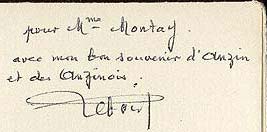 pour Mme Montay.
avec mon bon souvenir d'Anzin
et des Anzinois.